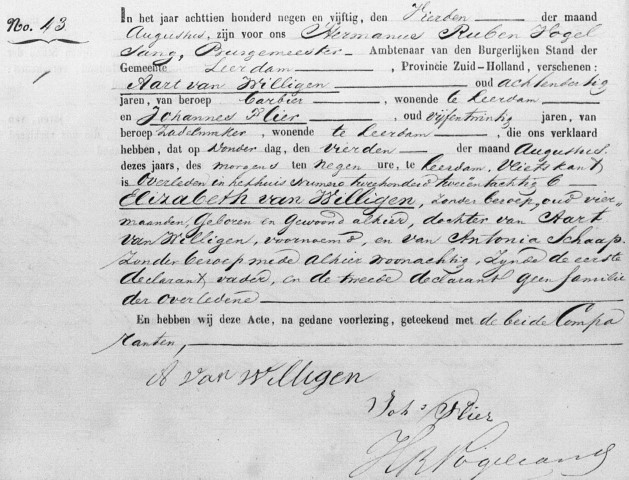 No. 43.
In het jaar achttien honderd negen en vijftig, den Vierden der maand
Augustus, zijn voor ons Hermanus Ruben Vogel
Sang, Burgemeester Ambtenaar van den Burgerlijken Stand der
Gemeente Leerdam, Provincie Zuid-Holland, verschenen:
Aart van Willigen oud achtendertig
jaren, van beroep barbier, wonende te Leerdam
en Johannes Flier, oud vijfentwintig jaren, van
beroep zadelmaker, wonende te Leerdam, die ons verklaard
hebben, dat op donderdag, den vierden der maand Augustus
dezes jaars, des morgens ten negen ure, te Leerdam, Vlietskant
is overleden in het huis numero tweehonderd tweeëntachtig b
Elizabeth van Willigen, zonder beroep, oud vier
maanden, geboren en gewoond alhier, dochter van Aart
van Willigen, voornoemd, en van Antonia Schaap,
zonder beroep mede alhier woonachtig, zynde de eerste
declarant vader, en de tweede declarant geen familie
der overledene
En hebben wij deze Acte, na gedane voorlezing, geteekend met de beide Compa
ranten,
A van Willigen
Joh.s Flier
HRVogelsang